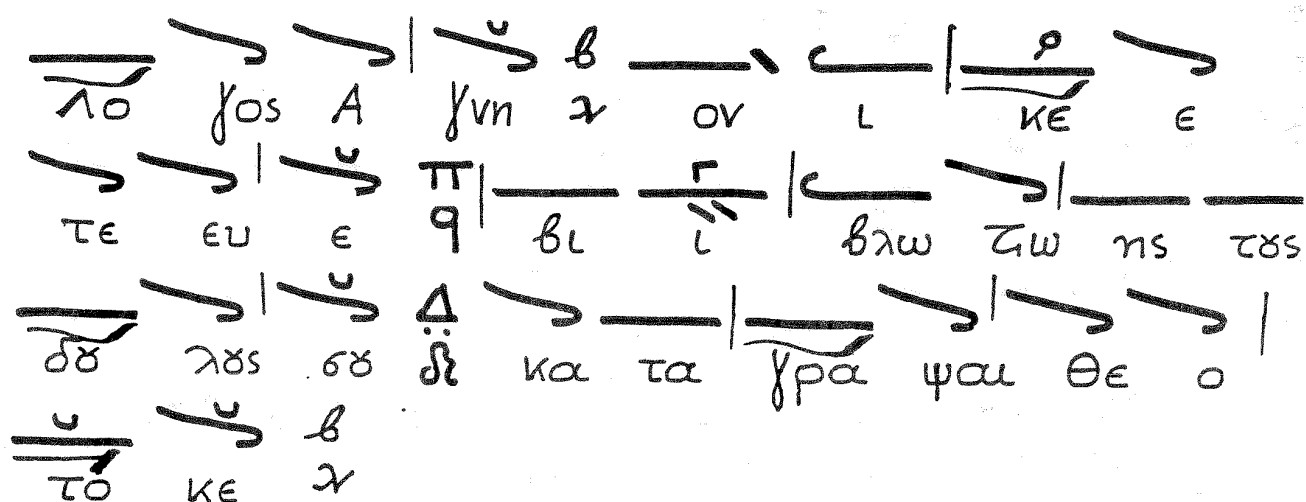 Λο γος Α γνη ον ι κε ε
τε ευ ε π q βι ι βλω ζω ης τȣς
δȣ λȣς σȣ Δ κα τα γρα ψαι Θε ο
το κε